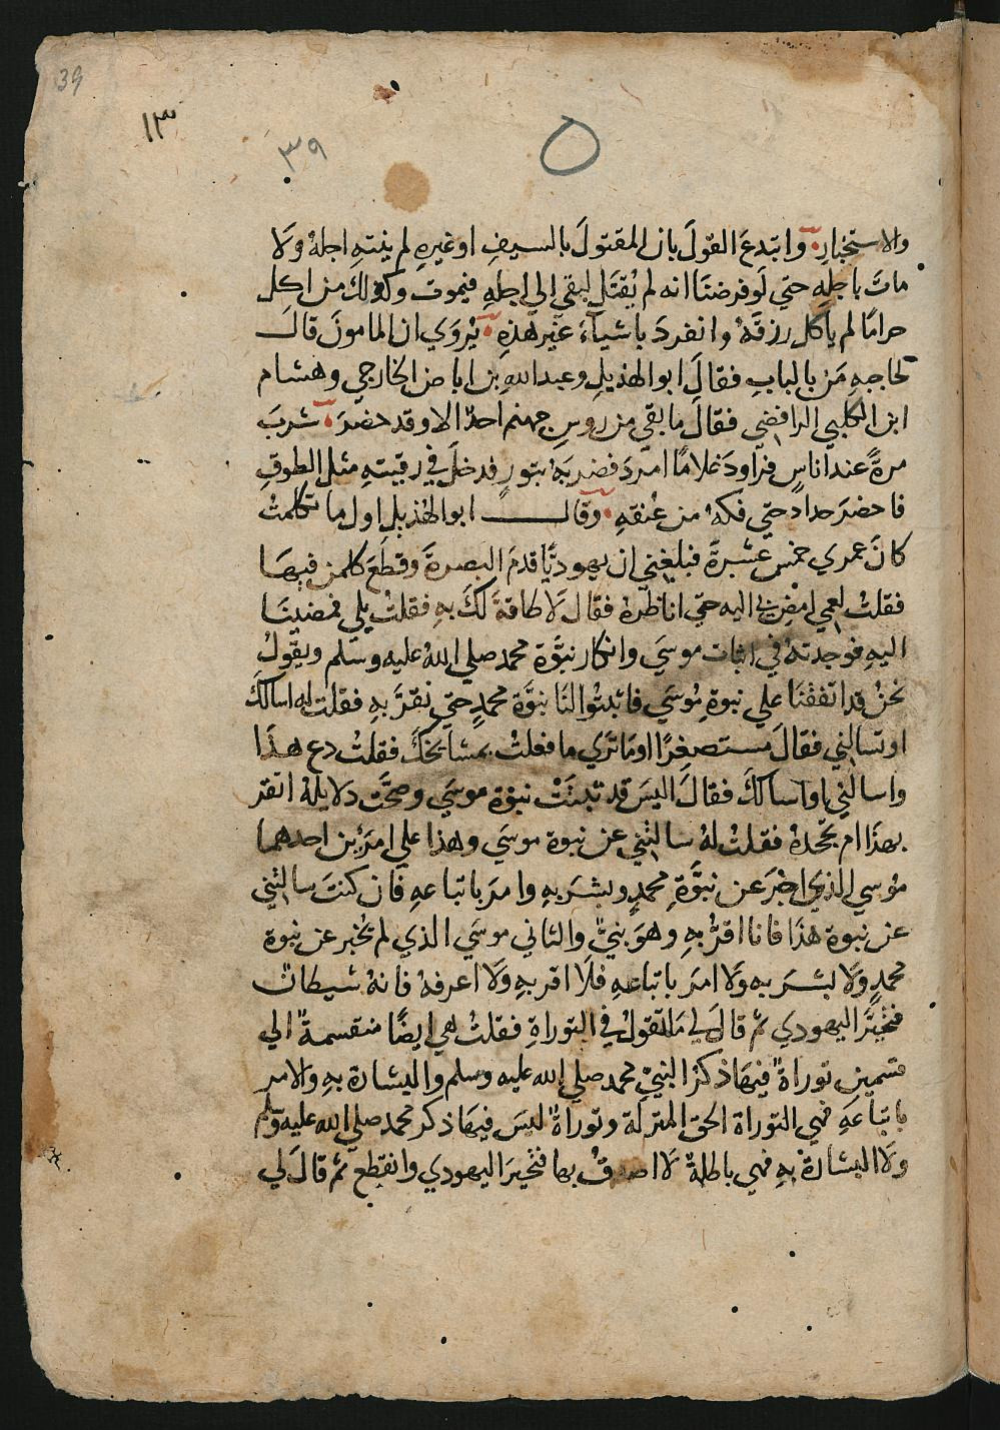 39
١٣
٣٩
والاستخبار وابتدعَ القولَ بان المقتولَ بالسيفِ اوغيرهِ لم ينتهِ اجلهُ ولَا
ماتَ باجلهِ حتي لَو فرضنَا انه لم يُقتَل لبقي الي اجلهِ فيموت وكذلكَ من اكل
حرامًا لم ياكل رزقهُ وانفردَ باشيآءَ غير هذهِ يُروَي ان المامونَ قالَ
لحاجبهِ مَن بالبابِ فقالَ ابو الهذيلِ وعبد اللهِ بن اباض الخارجي وهشام
ابن الكلبي الرافضي فقالَ ما بقي من روسِ جهنم احدٌ الا وقد حضرَ شربَ
مرةً عند اناسٍ فراودَ غلامًا امردَ فضربهُ بتورٍ فدخلَ في رقبتهِ مثل الطوقِ
فاحضرَ حداد حتي فكهُ من عُنقهِ وقال ابو الهذيل اول ما تكلمتُ
كانَ عمري خمس عشرةَ فبلغني ان يهوديًّا قدمَ البصرةَ وقطعَ كلمن فيهَا
فقلتُ لعمي امضِ بي اليه حتي اناظرهُ فقال لَا طاقةَ لكَ بهِ فقلتُ بلي فمضينَا
اليهِ فوجدتهُ في اثبات موسَي وانكار نبوَّة محمد صلي اللهُ عليه وسلم ويقولُ
نحنُ قد اتفقنَا علي نبوةِ مُوسَي فاثبتُوا لنَا نبوَّة محمدٍ حتي نقرَّ بهِ فقلت له اسالكَ
او تسالني فقالَ مستصغِرًا اومَا تري ما فعلتُ بمشايخكَ فقلتُ دع هذَا
واسالني او اسالكَ فقالَ اليسَ قد ثبتَتْ نبوة موسَي وصحَّت دلايلهُ اتقر
بهذَا ام تجحدهُ فقلتُ لهُ سالتني عن نبوة موسَي وهذا علي امرَيْن احدهما
مُوسي الذي اخبرَ عن نبوَّةِ محمدٍ وبشرَ بهِ وامرَ باتباعهِ فان كنتَ سالتني
عن نبوة هذَا فانا اقرُّ بهِ وهوَ نبيٌّ والثاني موسَي الذي لم يُخبر عن نبوة
محمدٍ ولَا بشرَ بهِ ولَا امرَ باتباعهِ فلَا اقر بهِ ولَا اعرفهُ فانهُ شيطانٌ
فتحيَّرَ اليهودي ثمّ قالَ لي مَا تقولُ في التوراةِ فقلتُ هي ايضًا منقسمةٌ الي
قسمين توراةٌ فيهَا ذكرُ النبيّ محمد صلي الله عليه وسلم والبشارة بهِ والامر
باتباعَهِ فهي التوراة الحق المنزلة وتوراةٌ ليسَ فيهَا ذكر محمد صلي الله عليه وسلم
ولَا البشارة بهِ فهي باطلةٌ لَا اصدقُ بها فتحيرَ اليهودي وانقطع ثمّ قالَ لي